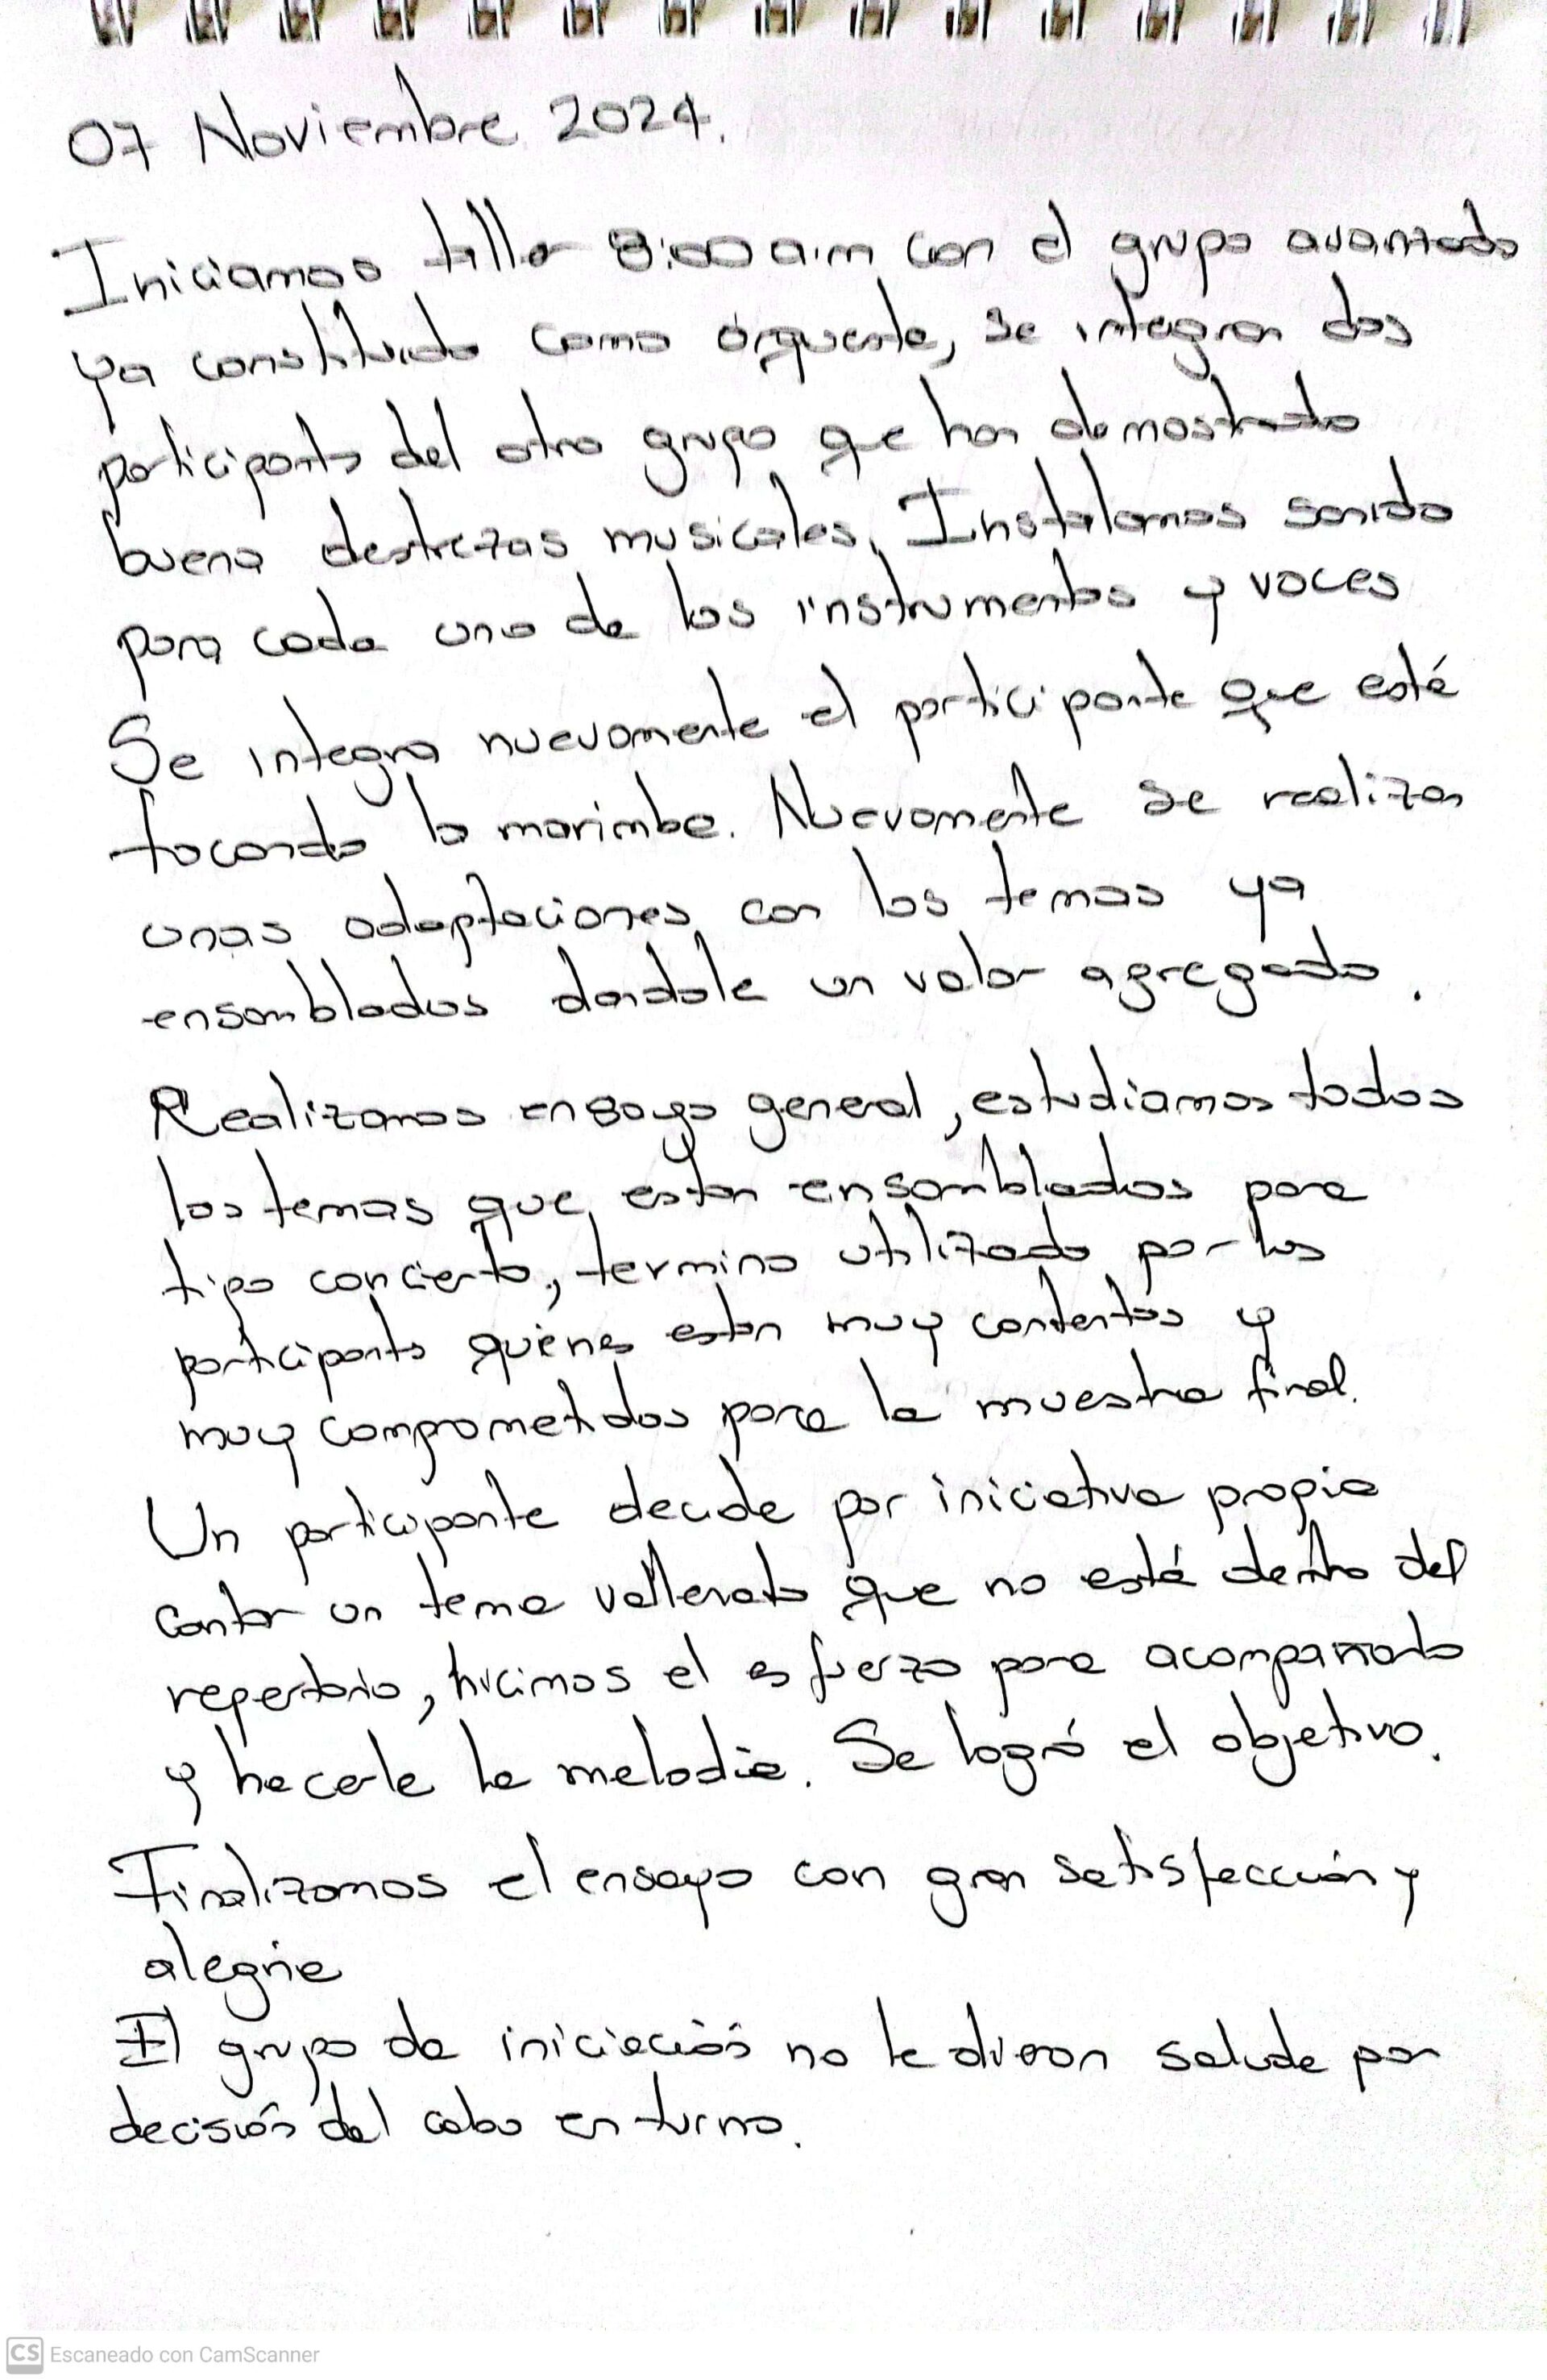 07 Noviembre 2024.
Iniciamos taller 8:00 a.m con el grupo avanzado
ya constituido como orquesta, se integran dos
participants del otro grupo que han demostrado
buena destrezas musicales. Instalamos sonido
para cada uno de los instrumentos y voces
Se integra nuevamente el participante que esté
tocando la marimba. Nuevamente se realizan
unas adaptaciones con los temas ya
ensamblados dandole un valor agregado.
Realizamos ensayo general, estudiamos todos
los temas que estan ensamblados para
tipo concierto, termino utilizado por los
participants quienes estan muy contentos y
muy comprometidos para la muestra final.
Un participante decide por iniciativa propia
cantar un tema vallenato que no está dentro del
repertorio, hicimos el esfuerzo para acompañarlo
y hacerle la melodia. Se logró el objetivo.
Finalizamos el ensayo con gran satisfacción y
alegria
El grupo de iniciación no le dieron salida por
decisión del cabo en turno.
CS Escaneado con CamScanner